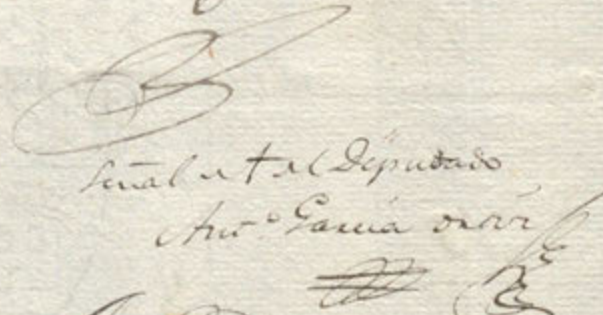 Señal de † del Diputado
Antº Garcia